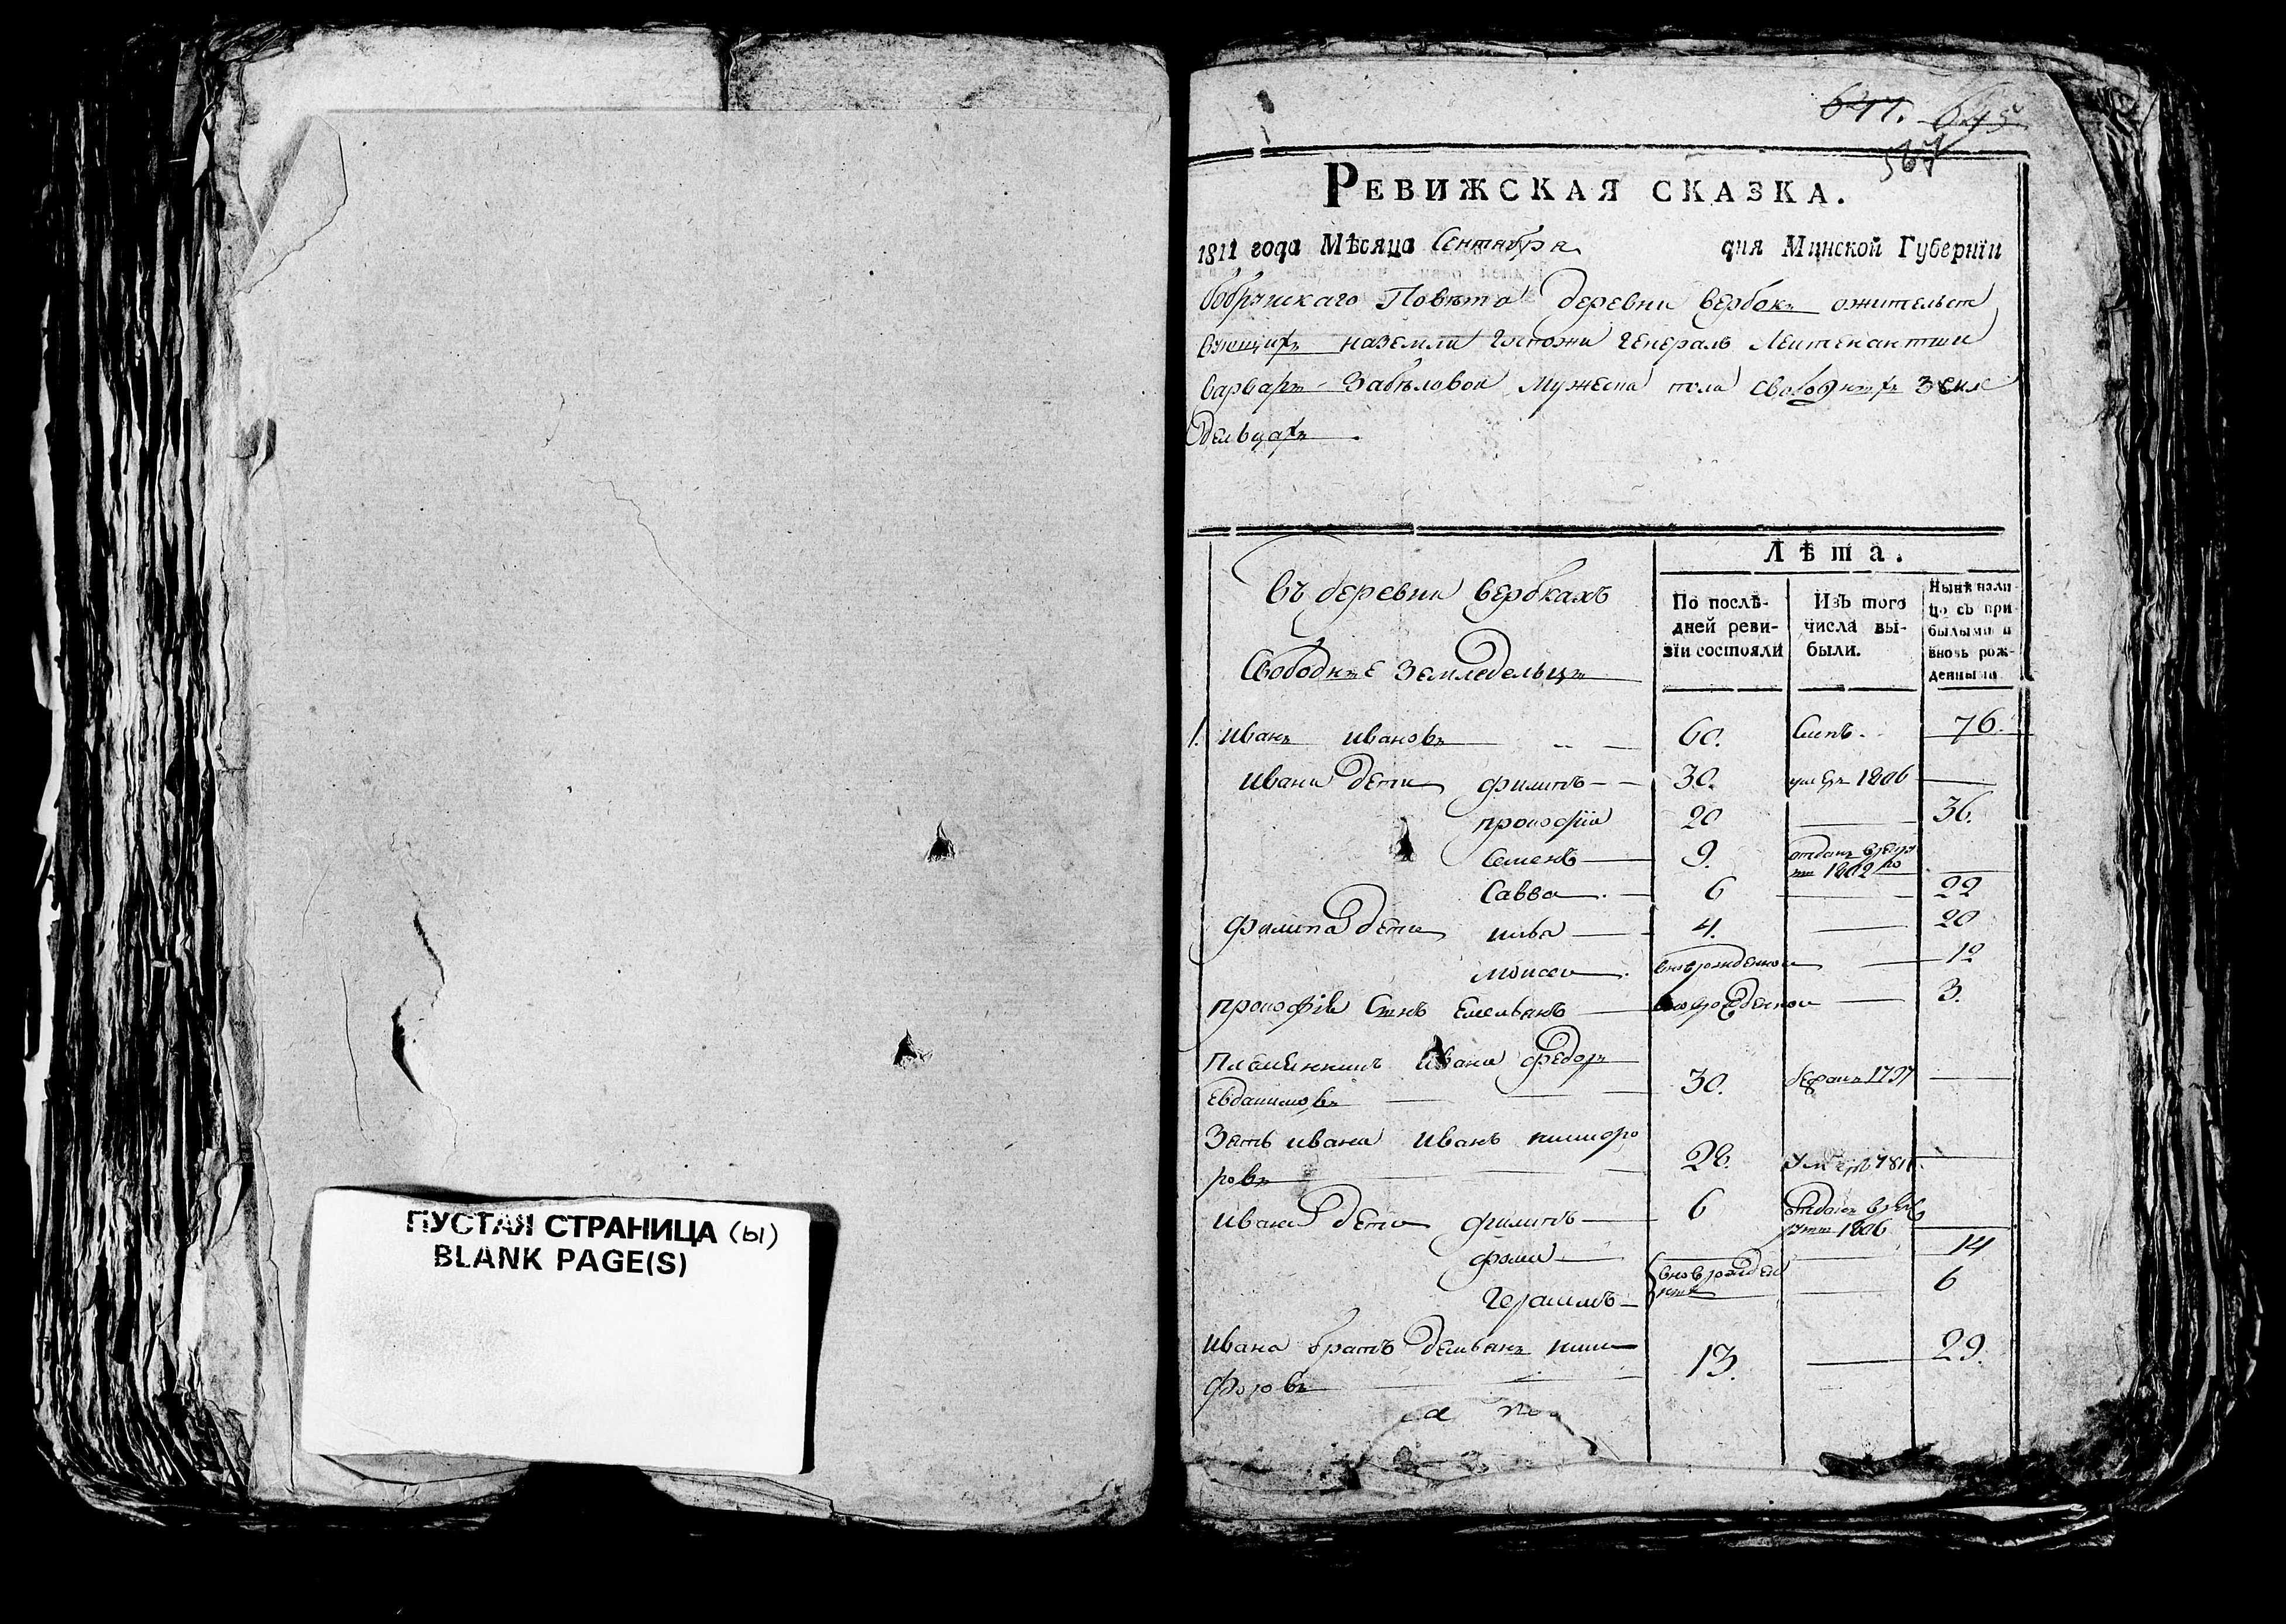 ПУСТАЯ СТРАНИЦА (ы)
BLANK PAGE(S)
647. 645
567
РЕВИЖСКАЯ СКАЗКА.
1811 года Мѣсяца Сентября дня Минской Губерніи
бобруискаго Повѣта деревни Вербокъ ожительст
вующихъ наземли Госпожи Генералъ Леитенантши
варвары Забѣловои мужеска пола свободныхъ земле
дельцахъ.
Лѣта.
въ деревни вербкахъ
Свободные Земледельцы
По послѣ-
дней реви-
зіи состояли
Изъ того
числа вы-
были.
Нынѣ нали-
цо съ при-
былыми и
вновь рож-
денными
1. иванъ ивановъ 60. слепъ. 76.
ивана дети филипъ 30. умеръ 1806
прокофiи 20 36.
Семенъ 9. отданъ врекру
ты 1802 го
Савва 6 22
филипа дети илья 4. 20
моисеи вноврожденнои 12
прокофiя Сынъ Емельянъ вноврожденнои 3.
племянникъ ивана федоръ
Евдакимовъ 30. 1797
Зять ивана иванъ никифо
ровъ 28. умеръ 1811.
ивана дети филипъ 6 отданъ врек
руты 1806
фома 14
вноврожден
ные
Герасимъ 6
ивана братъ Демьянъ ники
форовъ 13. 29.